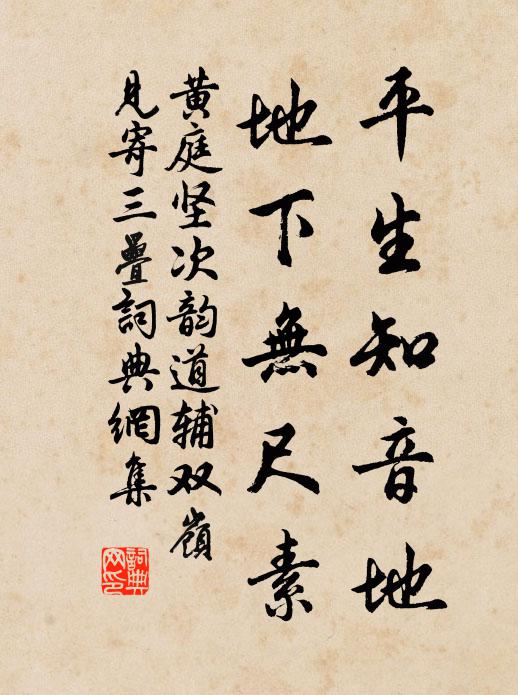 平生知音地
地下無尺素
黄庭坚次韵道辅双嶺
見寄三疊詞典網集
詞典網印